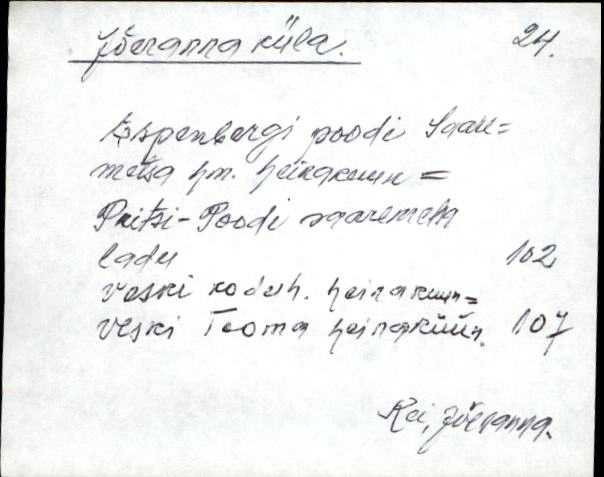 Jõeranna küla. 24.
Espenbergi poodi Saare=
metsa hm. heinakuun =
Pritsi-Poodi saaremetsa
ladu 102
Veski koduh. heinakuun=
Veski Tooma heinaküün. 107
Rei, Jõeranna.